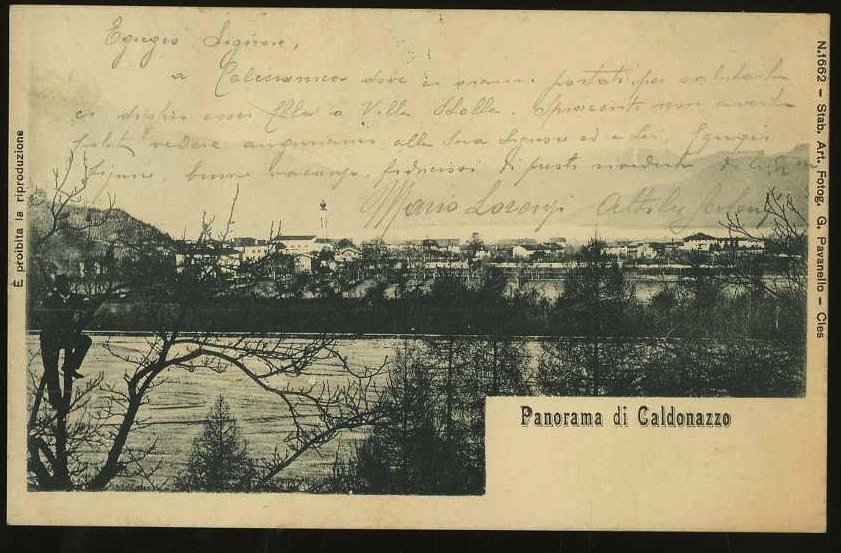 Egregio Signore,
a Calceranica dove ci eravamo portati per salutarla
ci dissero esser Ella a Villa Stella. Spiacenti non averla
potuto vedere auguriamo alla Sua Signora ed a Lei, Egregio
Signore, buone vacanze,
Mario Lorenzi
È proibita la riproduzione
N.1662 – Stab. Art. Fotog. G. Pavanello – Cles
Panorama di Caldonazzo